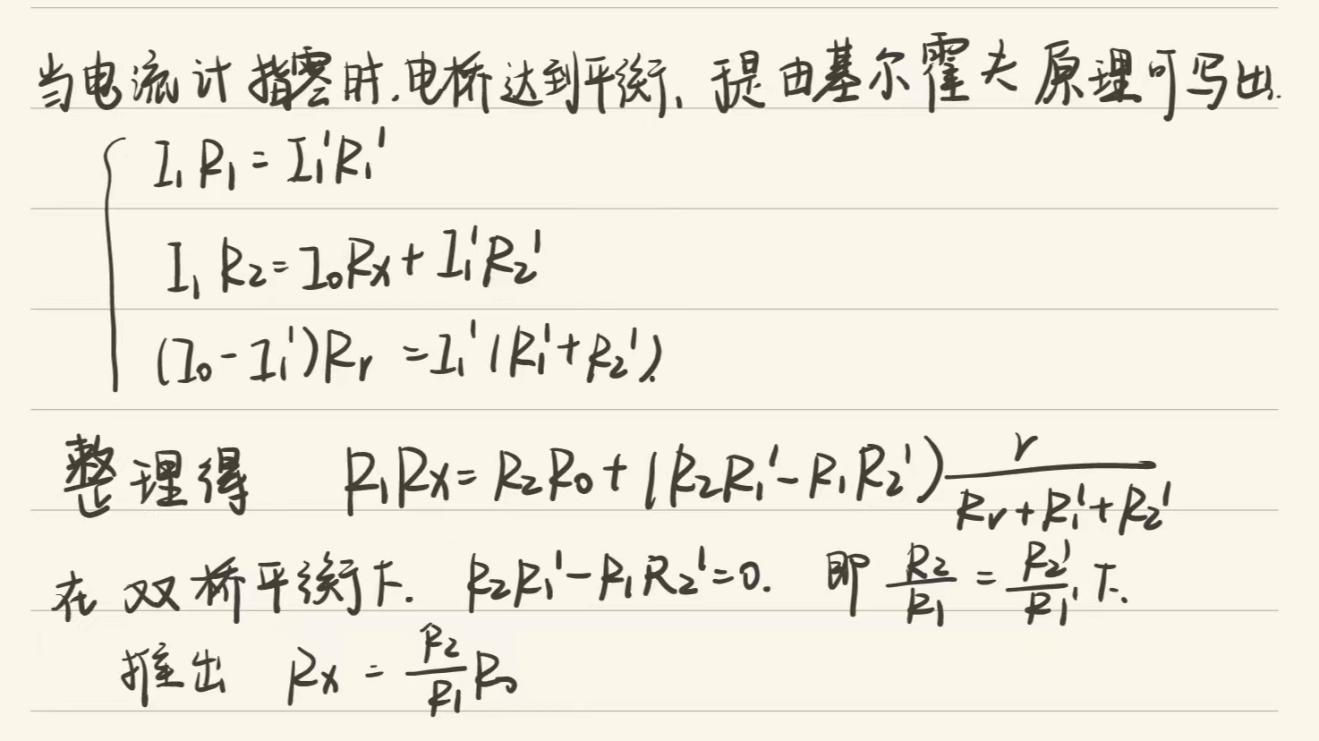 当电流计指零时.电桥达到平衡、提由基尔霍夫原理可写出.
I₁R₁=I₁'R₁'
I₁R₂=I₀Rx+I₁'R₂'
(I₀-I₁')Rr=I₁'(R₁'+R₂').
整理得 R₁Rx=R₂R₀+(R₂R₁'-R₁R₂')r/(Rr+R₁'+R₂')
在双桥平衡下. R₂R₁'-R₁R₂'=0. 即 R₂/R₁=R₂'/R₁'下.
推出 Rx=R₂/R₁R₀